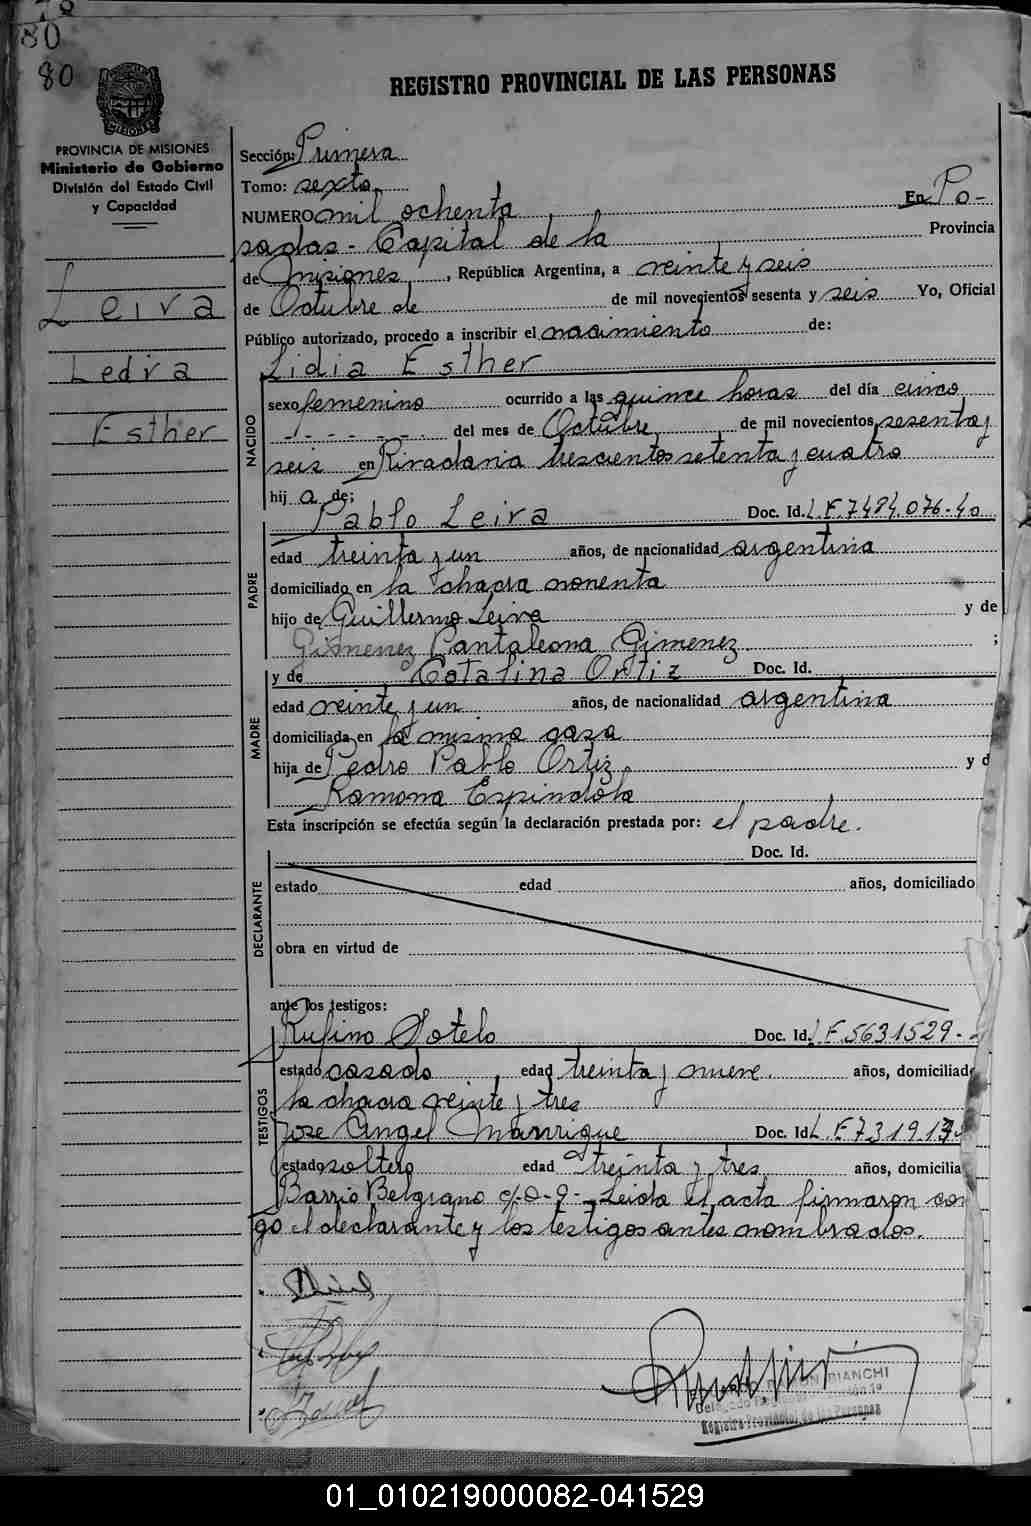 80
80
REGISTRO PROVINCIAL DE LAS PERSONAS
MISIONES
PROVINCIA DE MISIONES
Ministerio de Gobierno
División del Estado Civil
y Capacidad
Leiva
Ledia
Esther
Sección: Primera
Tomo: sexto
NUMERO mil ochenta En Po-
sadas - Capital de la Provincia
de Misiones, República Argentina, a veinte y seis
de Octubre de de mil novecientos sesenta y seis Yo, Oficial
Público autorizado, procedo a inscribir el nacimiento de:
Lidia Esther
NACIDO
sexo femenino ocurrido a las quince horas del día cinco
del mes de Octubre de mil novecientos sesenta y
seis en Rivadavia trescientos setenta y cuatro
hij a de;
Pablo Leiva Doc. Id. L.F.7484.076-40
PADRE
edad treinta y un años, de nacionalidad argentina
domiciliado en la chacra noventa
hijo de Guillermo Leiva y de
Gimenez Pantaleona Gimenez ;
y de Catalina Ortiz Doc. Id.
MADRE
edad veinte y un años, de nacionalidad argentina
domiciliada en la misma casa
hija de Pedro Pablo Ortiz y d
Ramona Espindola
Esta inscripción se efectúa según la declaración prestada por: el padre.
Doc. Id.
DECLARANTE
estado edad años, domiciliado
obra en virtud de
ante los testigos:
Rufino Sotelo Doc. Id. L.F.5631529-
TESTIGOS
estado casado edad treinta y nueve años, domiciliado
la chacra veinte y tres
Jose Angel Manrrique Doc. Id. L.F.7319.13
estado soltero edad treinta y tres años, domicilia
Barrio Belgrano c/-0-9- Leida el acta firmaron con
go el declarante y los testigos antes nombrados.
BIANCHI
Registro Provincial de las Personas
01_010219000082-041529